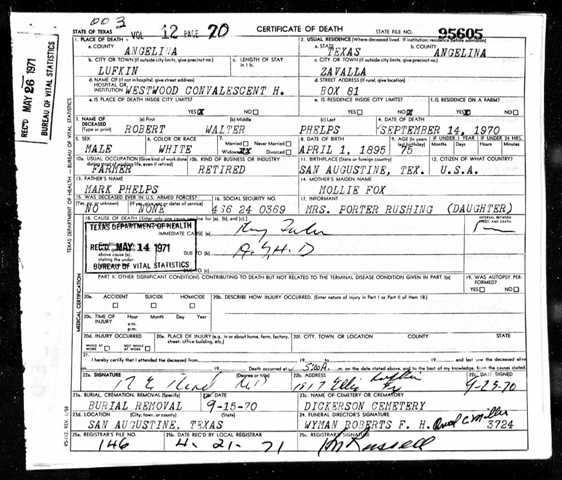 003
STATE OF TEXAS VOL 12 PAGE 70 CERTIFICATE OF DEATH STATE FILE NO. 95605
1. PLACE OF DEATH 2. USUAL RESIDENCE (Where deceased lived. If institution: residence before admission)
a. COUNTY ANGELINA a. STATE TEXAS b. COUNTY ANGELINA
b. CITY OR TOWN (If outside city limits, give precinct no.) c. LENGTH OF STAY in 1 b. c. CITY OR TOWN (If outside city limits, give precinct no.)
LUFKIN ZAVALLA
d. NAME OF (If not in hospital, give street address) HOSPITAL OR INSTITUTION WESTWOOD CONVALESCENT H. d. STREET ADDRESS (If rural, give location) BOX 81
e. IS PLACE OF DEATH INSIDE CITY LIMITS? YES NO e. IS RESIDENCE INSIDE CITY LIMITS? YES NO f. IS RESIDENCE ON A FARM? YES NO
3. NAME OF DECEASED (Type or print) (a) First (b) Middle (c) Last 4. DATE OF DEATH
ROBERT WALTER PHELPS SEPTEMBER 14, 1970
5. SEX 6. COLOR OR RACE 7. Married Never Married Widowed Divorced 8. DATE OF BIRTH 9. AGE (In years IF UNDER 1 YEAR IF UNDER 24 HRS.
MALE WHITE XX APRIL 1, 1895 75 Months Days Hours Min.
10a. USUAL OCCUPATION (Give kind of work done during most of working life, even if retired) 10b. KIND OF BUSINESS OR INDUSTRY 11. BIRTHPLACE (State or foreign country) 12. CITIZEN OF WHAT COUNTRY?
FARMER RETIRED SAN AUGUSTINE, TEX. U.S.A.
13. FATHER'S NAME 14. MOTHER'S MAIDEN NAME
MARK PHELPS MOLLIE FOX
15. WAS DECEASED EVER IN U.S. ARMED FORCES? 16. SOCIAL SECURITY NO. 17. INFORMANT
NO NONE 456 24 0369 MRS. PORTER RUSHING (DAUGHTER)
18. CAUSE OF DEATH INTERVAL BETWEEN ONSET AND DEATH
TEXAS DEPARTMENT OF HEALTH
IMMEDIATE CAUSE (a)
REC'D MAY 14 1971 DUE TO (b) A.S.H.D
above cause (a), stating the underlying
BUREAU OF VITAL STATISTICS DUE TO (c)
PART II. OTHER SIGNIFICANT CONDITIONS CONTRIBUTING TO DEATH BUT NOT RELATED TO THE TERMINAL DISEASE CONDITION GIVEN IN PART I(a) 19. WAS AUTOPSY PERFORMED? YES NO
20a. ACCIDENT SUICIDE HOMICIDE 20b. DESCRIBE HOW INJURY OCCURRED. (Enter nature of injury in Part I or Part II of item 18.)
20c. TIME OF INJURY Hour Month Day Year a.m. p.m.
20d. INJURY OCCURRED WHILE AT WORK NOT WHILE AT WORK 20e. PLACE OF INJURY (e.g. in or about home, farm, factory, street, office building, etc.) 20f. CITY, TOWN, OR LOCATION COUNTY STATE
21. I hereby certify that I attended the deceased from 19 to 19 and last saw the deceased alive
on 19 Death occurred at m. on the date stated above, and to the best of my knowledge, from the causes stated.
22a. SIGNATURE (Degree or title) 22b. ADDRESS 22c. DATE SIGNED
9-23-70
23a. BURIAL, CREMATION, REMOVAL (Specify) 23b. DATE 23c. NAME OF CEMETERY OR CREMATORY
BURIAL REMOVAL 9-15-70 DICKERSON CEMETERY
23d. LOCATION (City, town, or county) (State) 24. FUNERAL DIRECTOR'S SIGNATURE
SAN AUGUSTINE, TEXAS WYMAN ROBERTS F. H. 3724
25a. REGISTRAR'S FILE NO. 25b. DATE REC'D BY LOCAL REGISTRAR 25c. REGISTRAR'S SIGNATURE
146 4-21-71 Russell
REC'D MAY 26 1971
BUREAU OF VITAL STATISTICS
TEXAS DEPARTMENT OF HEALTH - BUREAU OF VITAL STATISTICS
MEDICAL CERTIFICATION